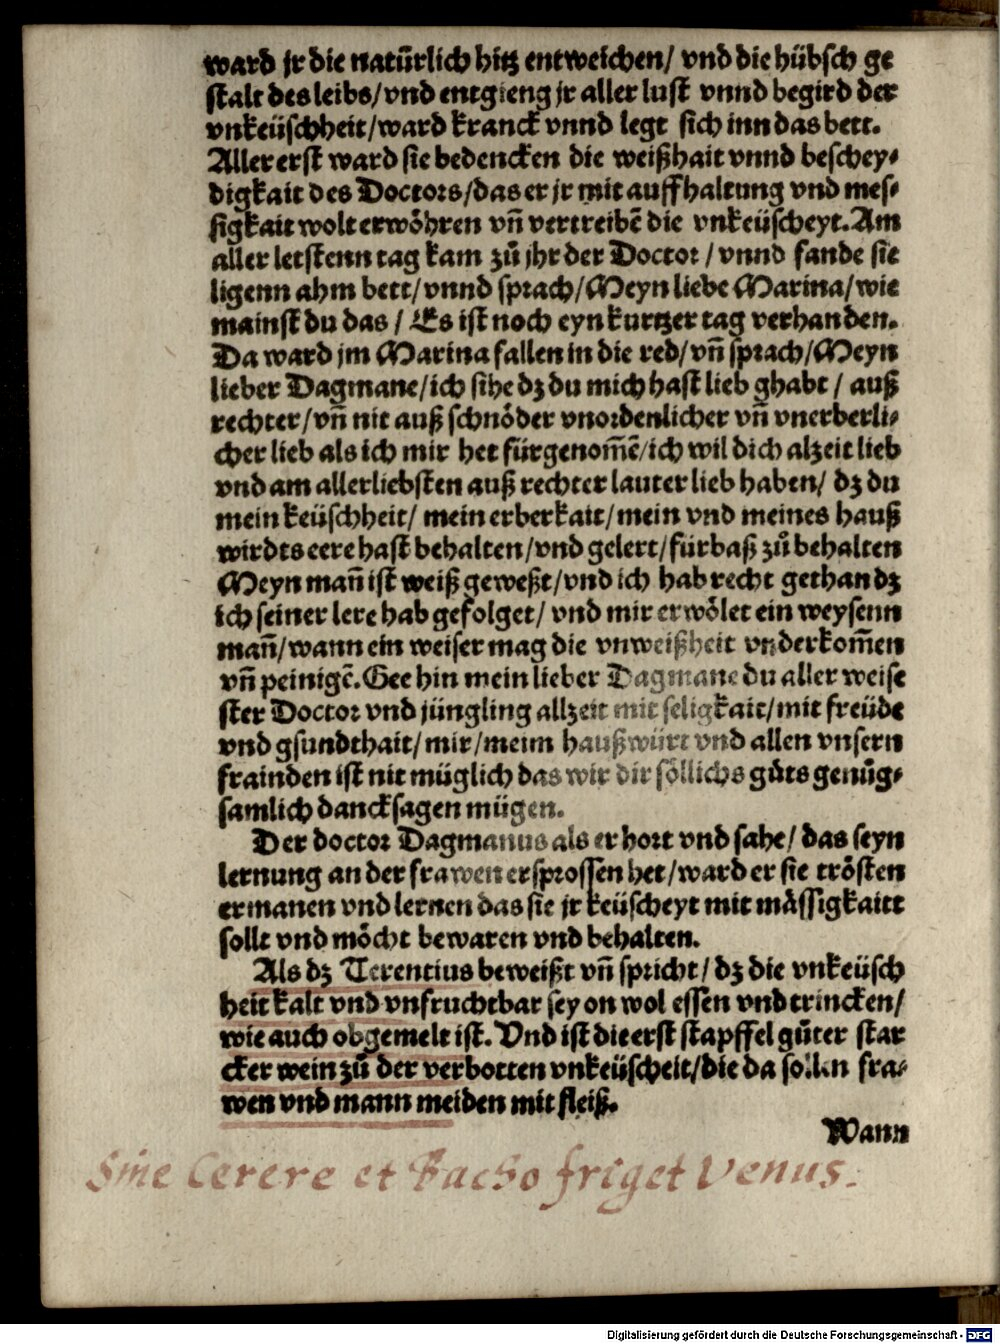 ward jr die natürlich hitz entweichen/ vnd die hübsch ge
stalt des leibs/vnd entgieng jr aller lust vnnd begird der
vnkeüschheit/ward kranck vnnd legt sich inn das bett.
Allererst ward sie bedencken die weißhait vnnd beschey⸗
digkait des Doctors/das er jr mit auffhaltung vnd mes⸗
sigkait wolt erwöhren vñ vertreibē die vnkeüscheyt. Am
aller letstenn tag kam zů jhr der Doctor/vnnd fande sie
ligenn ahm bett/vnnd sprach/Meyn liebe Marina/wie
mainst du das/Es ist noch eyn kurtzer tag verhanden.
Da ward jm Marina fallen in die red/vñ sprach/Meyn
lieber Dagmane/ich sihe dz du mich hast lieb ghabt/ auß
rechter/vñ nit auß schnöder vnordenlicher vñ vnerberli⸗
cher lieb als ich mir het fürgenom̄ē/ich wil dich alzeit lieb
vnd am allerliebsten auß rechter lauter lieb haben/ dz du
mein keüschheit/ mein erberkait/mein vnd meines hauß
wirdts eere hast behalten/vnd gelert/fürbaß zů behalten
Meyn man̄ ist weiß geweßt/vnd ich hab recht gethan dz
ich seiner lere hab gefolget/ vnd mir erwölet ein weysenn
man̄/wann ein weiser mag die vnweißheit vnderkom̄en
vñ peinigē. Gee hin mein lieber Dagmane du aller weise
ster Doctor vnd jüngling allzeit mit seligkait/mit freüde
vnd gsundthait/mir/meim haußwürt vnd allen vnsern
frainden ist nit müglich das wir dir söllichs gůts genůg⸗
samlich dancksagen mügen.
Der doctor Dagmanus als er hort vnd sahe/ das seyn
lernung an der frawen ersprossen het/ward er sie trösten
ermanen vnd lernen das sie jr keüscheyt mit mässigkaitt
sollt vnd möcht bewaren vnd behalten.
Als dz Terentius beweißt vñ spricht/ dz die vnkeüsch
heit kalt vnd vnfruchtbar sey on wol essen vnd trincken/
wie auch obgemelt ist. Vnd ist die erst stapffel gůter star
cker wein zů der verbotten vnkeüscheit/die da sollen fra⸗
wen vnd mann meiden mit fleiß.
Wann
Sine Cerere et Bacho friget Venus.
Digitalisierung gefördert durch die Deutsche Forschungsgemeinschaft - DFG